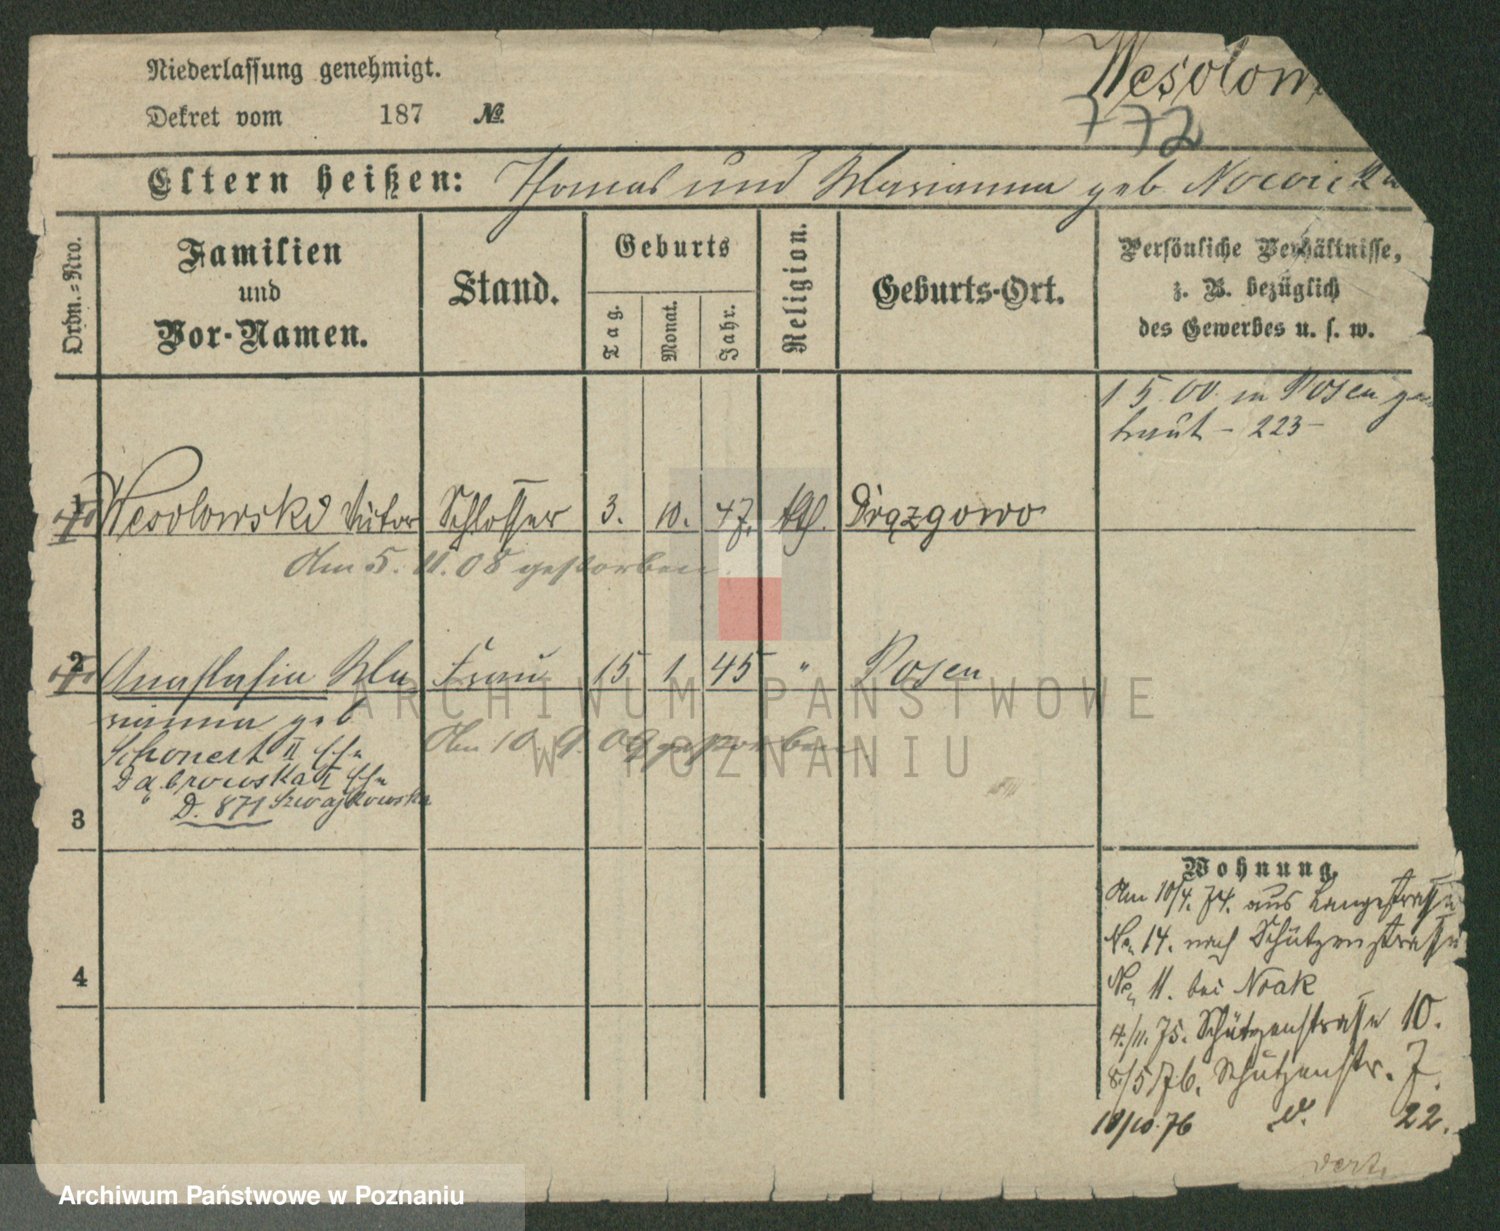 Niederlassung genehmigt.
Dekret vom 187 №
Wesolows
772
Eltern heißen: Thomas und Marianna geb. Nowicka
Ordn.-Nro.
Familien
und
Vor-Namen.
Stand.
Geburts
Tag.
Monat.
Jahr.
Religion.
Geburts-Ort.
Persönliche Verhältnisse,
z. B. bezüglich
des Gewerbes u. s. w.
1 5. 00. in Posen ge
traut - 223 -
1 Wesolowski Victor Schlosser 3. 10. 47. kth. Drązgowo
Am 5. 11. 08 gestorben.
2 Anastasia Ma Frau 15 1 45 " Posen
rianna geb
Schonert II
Am 10. 9. 09 gestorben
Dąbrowska I
D. 871 Szwajkowska
3
4
Wohnung.
Am 10/4. 74. aus Langestrasse
No 14. nach Schützenstrasse
No 11. bei Noak
4./11. 75. Schützenstrasse 10.
8/5 76. Schützenstr. 7.
10/10. 76 d. 22.
vert.
ARCHIWUM PAŃSTWOWE
W POZNANIU
Archiwum Państwowe w Poznaniu